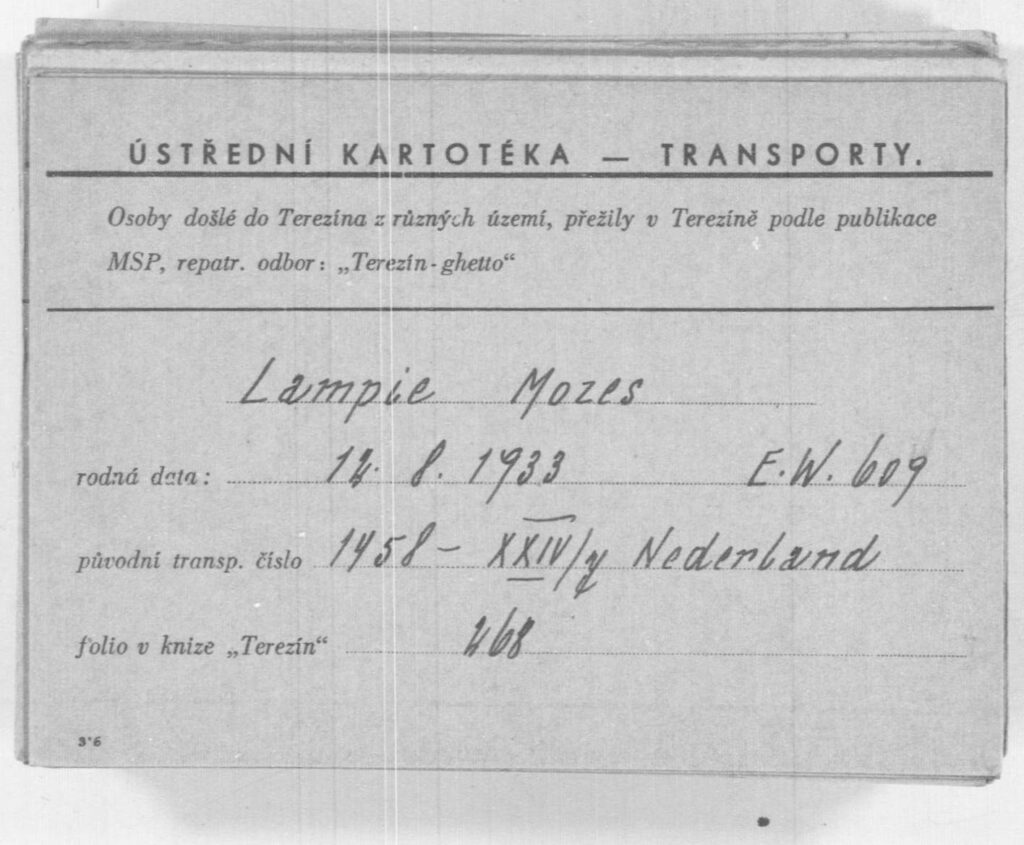 ÚSTŘEDNÍ KARTOTÉKA — TRANSPORTY.
Osoby došlé do Terezína z různých území, přežily v Terezíně podle publikace
MSP, repatr. odbor: „Terezín-ghetto“
Lampie Mozes
rodná data: 12. 8. 1933 E.W. 609
původní transp. číslo 1458 – XXIV/7 Nederland
folio v knize „Terezín“ 268